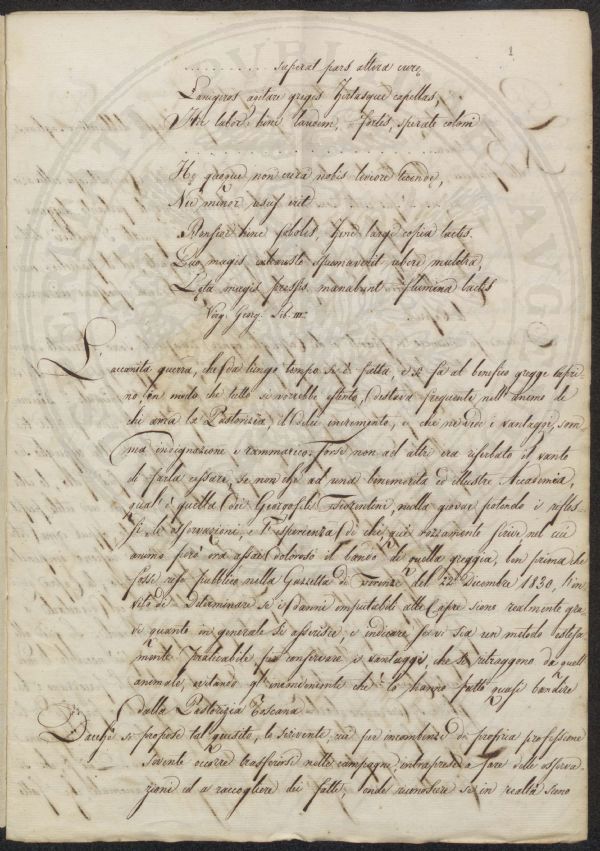 1
. . . . . . . . . . superat pars altera curę
Lanigeros agitare greges hirtasque capellas,
Hic labor hinc laudem, fortes, sperate coloni
. . . . . . . . . . . . . . . . . . . . . . . . . .
Hę quoque non cura nobis leviore tuendę,
Nec minor usus erit . . . . . .
Densior hinc soboles, hinc largi copia lactis.
Quo magis exhausto spumaverit ubere mulctra,
Lęta magis pressis manabunt flumina
Virg. Georg. Lib. III.
L'accanita guerra, che da lungo tempo si è fatta e si fa al benefico gregge capri
no, in modo che tutto si vorrebbe estinto, destava frequente nell'animo di
chi ama la Pastorizia, il di lei incremento, e che ne vede i vantaggi, som̃
ma indignazione e rammarico. Forse non ad altri era riserbato il vanto
di farla cessare, se non che ad una benemerita ed illustre Accademia,
qual è quella dei Georgofili Fiorentini, nulla giovar potendo i rifles-
si, le osservazioni, e l'esperienza di chi quì rozzamente scrive, nel cui
animo però era assai doloroso il bando di quella greggia, ben prima che
fosse reso pubblico nella Gazzetta di Firenze del 22 Dicembre 1830, l'in
vito di Determinare se i danni imputabili alle Capre siano realmente gra
vi quanto in generale si asserisce, e indicare se vi sia un metodo estesa
mente praticabile, per conservare i vantaggi, che si ritraggono da quell'
animale, evitando gl'inconvenienti che lo hanno fatto quasi bandire
dalla Pastorizia Toscana.
Dacchè si propose tal quesito, lo scrivente cui per incombenze di propria professione
sovente occorre trasferirsi nelle campagne, intraprese a fare delle osserva-
zioni ed a raccogliere dei fatti, onde riconoscere se in realtà siano